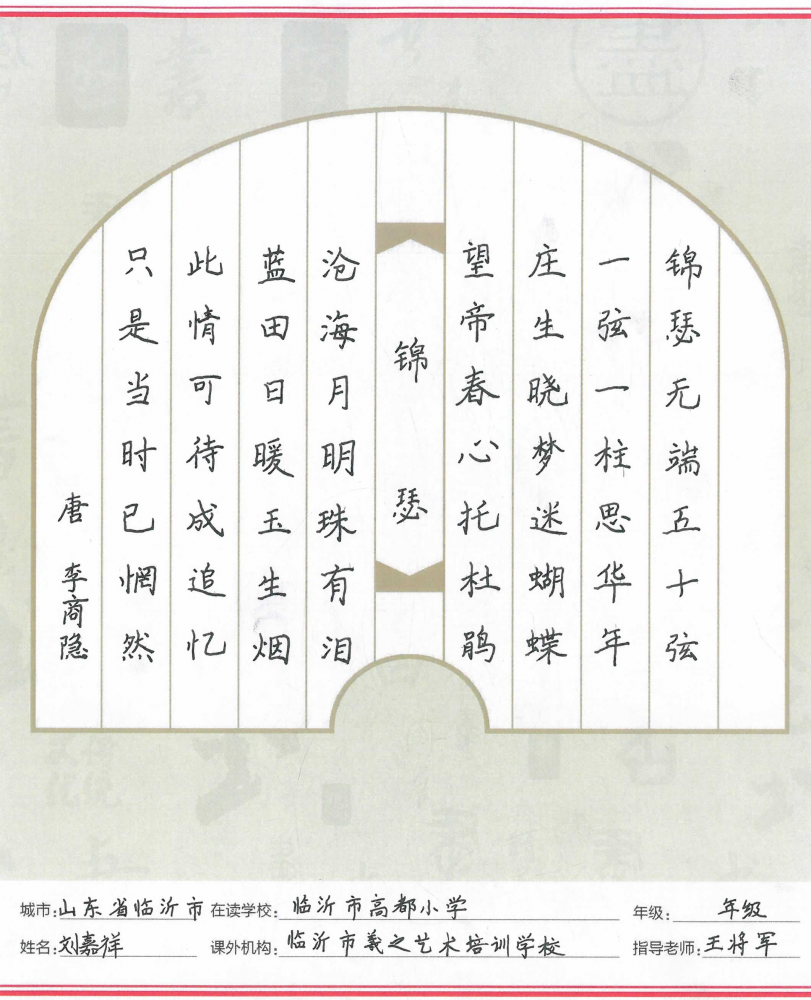 锦瑟无端五十弦
一弦一柱思华年
庄生晓梦迷蝴蝶
望帝春心托杜鹃
锦瑟
沧海月明珠有泪
蓝田日暖玉生烟
此情可待成追忆
只是当时已惘然
唐 李商隐
城市:山东省临沂市 在读学校:临沂市高都小学 年级:年级
姓名:刘嘉祥 课外机构:临沂市羲之艺术培训学校 指导老师:王将军